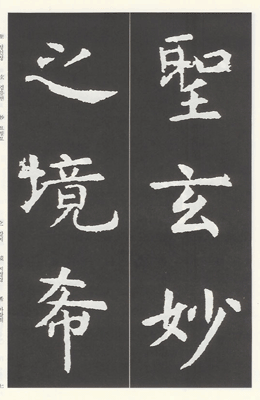 聖玄妙
之境希